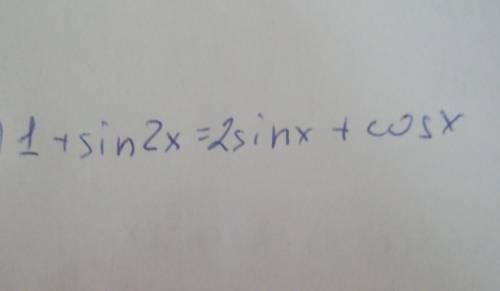 ) 1 + sin2x = 2sinx + cosx